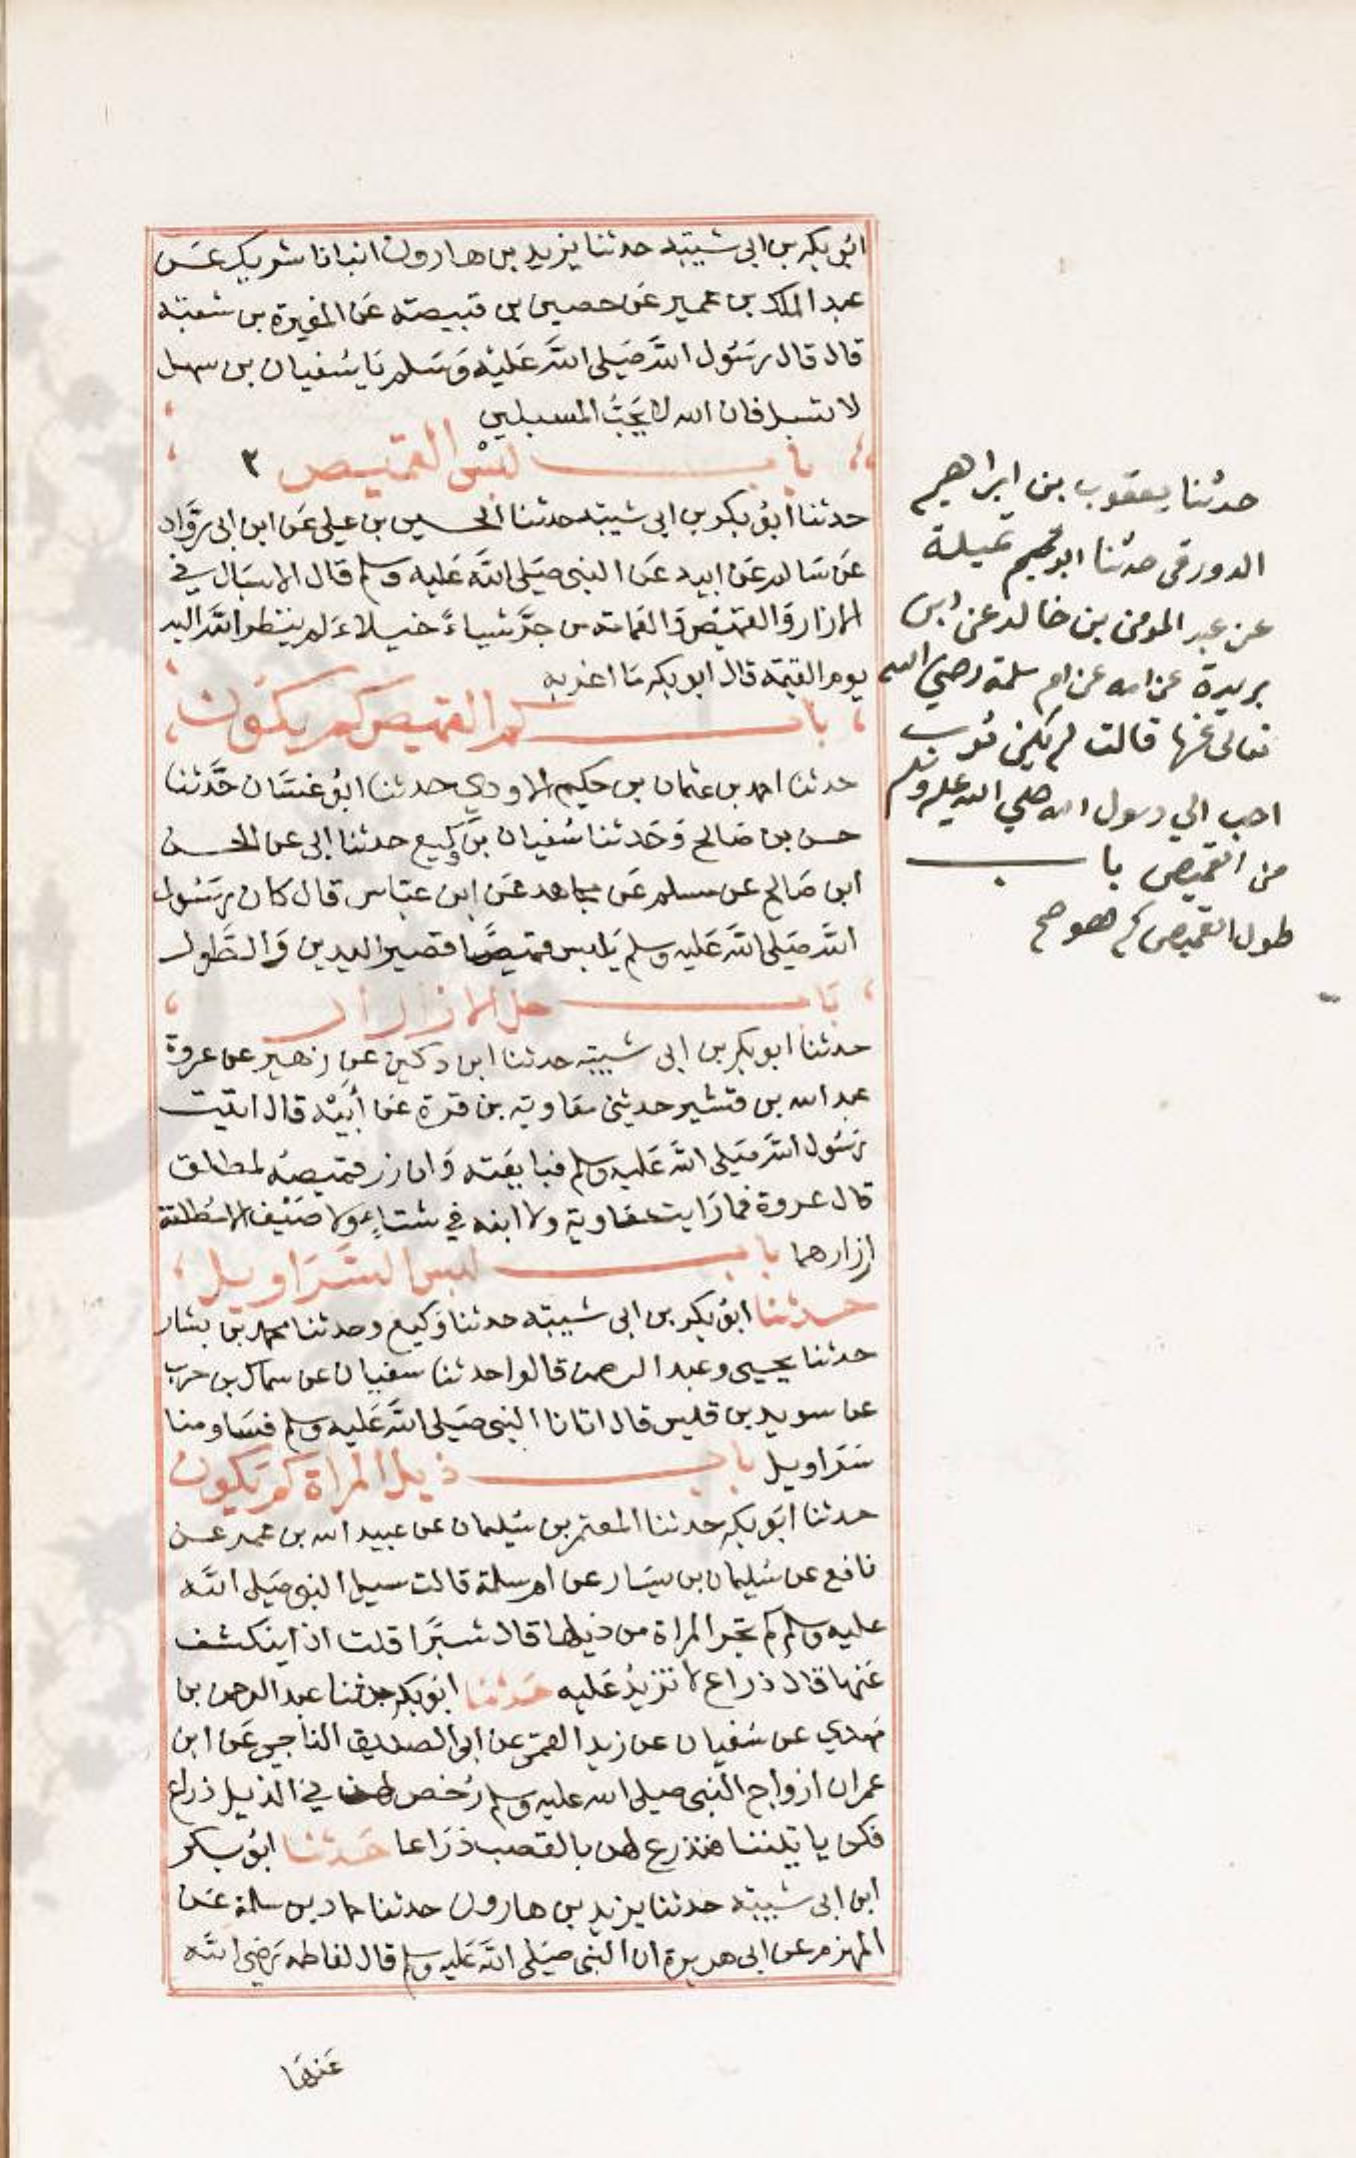 ابو بكر بن ابي شيبة حدثنا يزيد بن هارون انبانا شريك عن
عبد الملك بن عمير عن حصين بن قبيصة عن المغيرة بن شعبة
قال قال رسول الله صلى الله عليه وسلم يا سفيان بن سهل
لا تسبل فان الله لا يحب المسبلين
باب لبس القميص ٣
حدثنا ابو بكر بن ابي شيبة حدثنا الحسين بن علي عن ابن ابي رواد
عن سالم عن ابيه عن النبي صلى الله عليه وسلم قال الاسبال في
الازار والقميص والعمامة من جر شيياء خيلاء لم ينظر الله اليه
يوم القيمة قال ابو بكر ما اغربه
باب كم القميص كم يكون
حدثنا احمد بن عثمان بن حكيم الاودي حدثنا ابو غسان حدثنا
حسن بن صالح وحدثنا سفيان بن وكيع حدثنا ابي عن الحسن
ابن صالح عن مسلم عن مجاهد عن ابن عباس قال كان رسول
الله صلى الله عليه وسلم يلبس قميصا قصير اليدين والطول
باب حل الازرار
حدثنا ابو بكر بن ابي شيبة حدثنا ابن دكين عن زهير عن عروة
عبد الله بن قشير حدثني معاوية بن قرة عن ابيه قال اتيت
رسول الله صلى الله عليه وسلم فبايعته وان زر قميصه لمطلق
قال عروة فما رايت معاوية ولا ابنه في شتاء ولا صيف الا مطلقة
ازارهما باب لبس السراويل
حدثنا ابو بكر بن ابي شيبة حدثنا وكيع وحدثنا محمد بن بشار
حدثنا يحيى وعبد الرحمن قالوا حدثنا سفيان عن سماك بن حرب
عن سويد بن قيس قال اتانا النبي صلى الله عليه وسلم فساومنا
سراويل باب ذيل المراة كم يكون
حدثنا ابو بكر حدثنا المعتمر بن سليمان عن عبيد الله بن عمر عن
نافع عن سليمان بن يسار عن ام سلمة قالت سيل النبي صلى الله
عليه وسلم كم تجر المراة من ذيلها قال شبرا قلت اذا ينكشف
عنها قال ذراع لا تزيد عليه حدثنا ابو بكر حدثنا عبد الرحمن بن
مهدي عن سفيان عن زيد العمي عن ابي الصديق الناجي عن ابن
عمر ان ازواج النبي صلى الله عليه وسلم رخص لهن في الذيل ذراع
فكن ياتيننا فنذرع لهن بالقصب ذراعا حدثنا ابو بكر
ابن ابي شيبة حدثنا يزيد بن هارون حدثنا حماد بن سلمة عن
المهزم عن ابي هريرة ان النبي صلى الله عليه وسلم قال لفاطمة رضي الله
عنها
حدثنا يعقوب بن ابراهيم
الدورقي حدثنا ابو تميلة
عن عبد المومن بن خالد عن ابن
بريدة عن امه عن ام سلمة رضي الله
تعالى عنها قالت لم يكن ثوب
احب الي رسول الله صلي الله عليه وسلم
من القميص باب
طول القميص كم هو صح